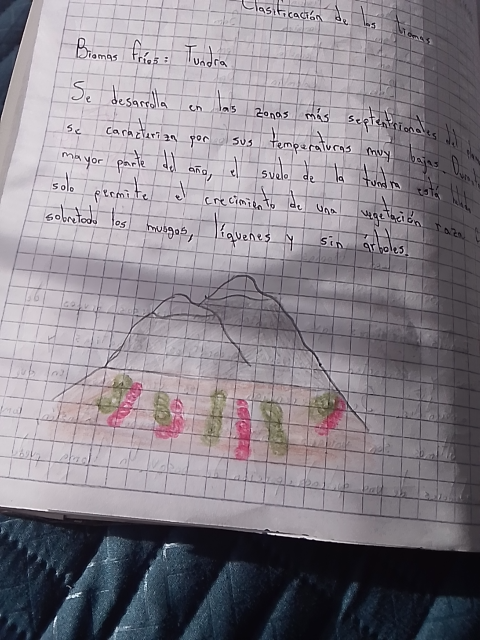 Clasificación de los biomas
Biomas fríos: Tundra
Se desarrolla en las zonas más septentrionales del
se caracteriza por sus temperaturas muy bajas. Durante
mayor parte del año, el suelo de la tundra está helado
solo permite el crecimiento de una vegetación raza
sobretodo los musgos, líquenes y sin árboles.